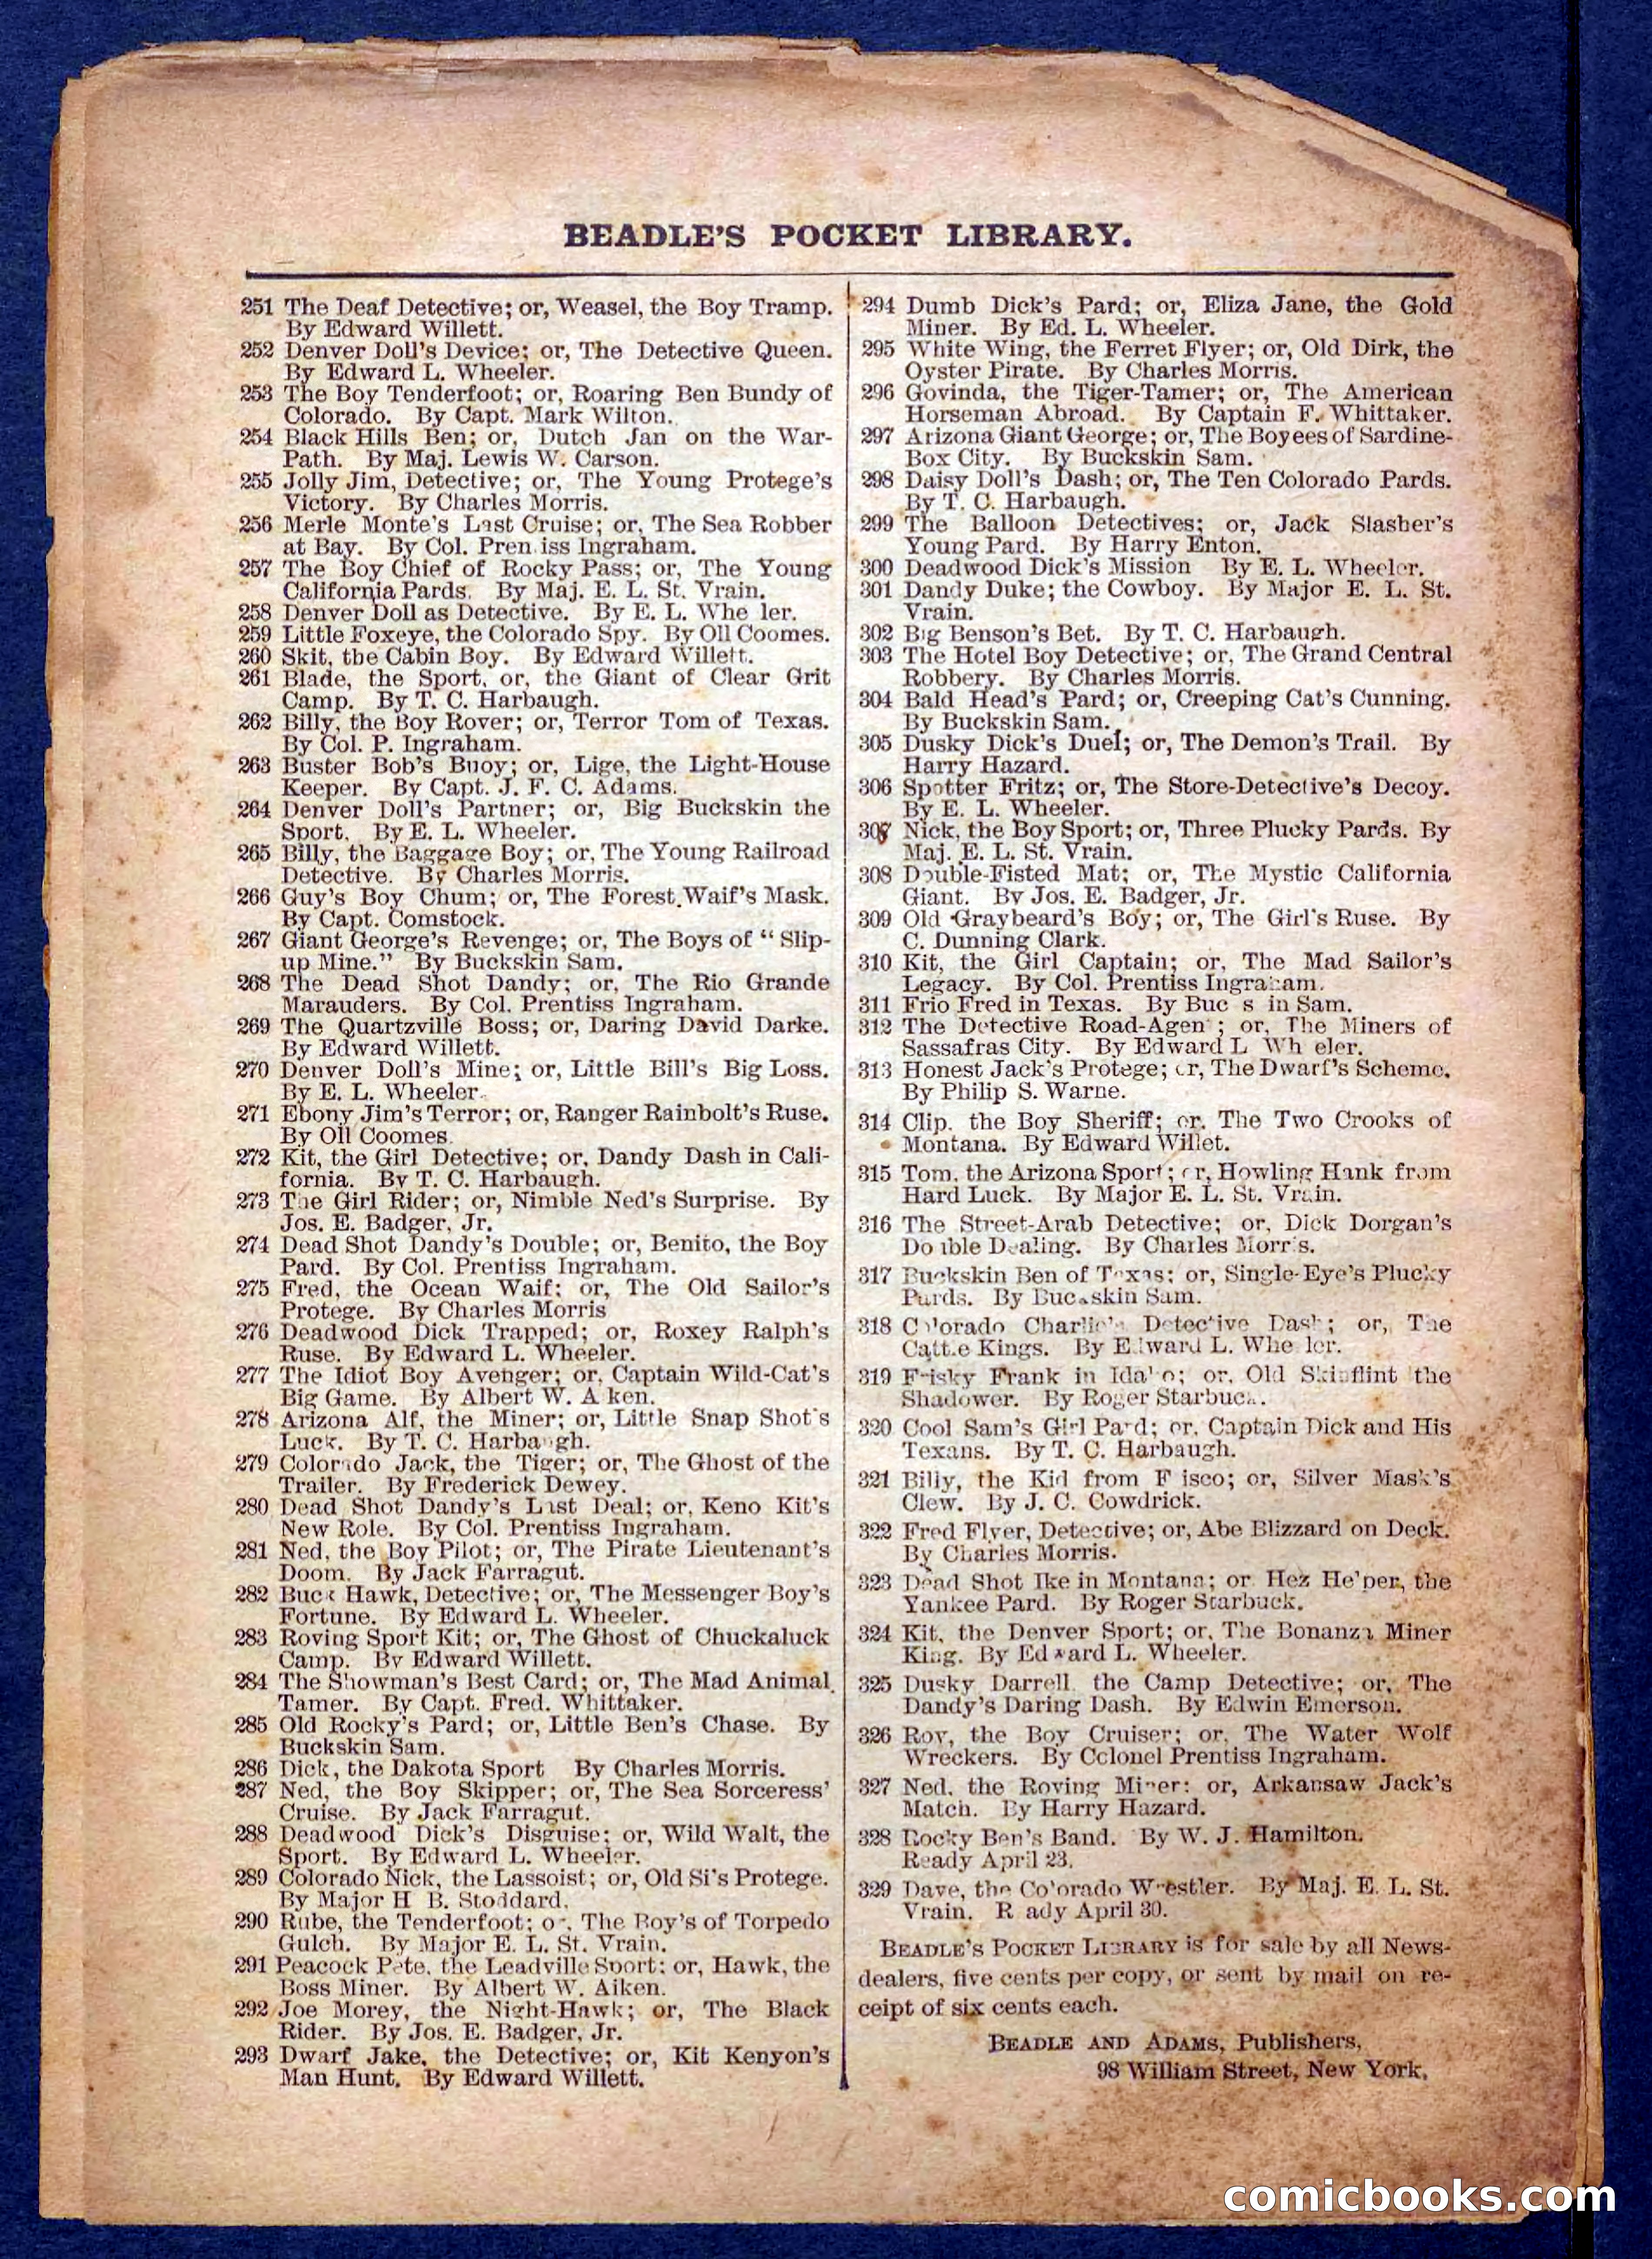 BEADLE'S POCKET LIBRARY.
251 The Deaf Detective; or, Weasel, the Boy Tramp.
By Edward Willett.
252 Denver Doll's Device; or, The Detective Queen.
By Edward L. Wheeler.
253 The Boy Tenderfoot; or, Roaring Ben Bundy of
Colorado. By Capt. Mark Wilton.
254 Black Hills Ben; or, Dutch Jan on the War-
Path. By Maj. Lewis W. Carson.
255 Jolly Jim, Detective; or, The Young Protege's
Victory. By Charles Morris.
256 Merle Monte's Last Cruise; or, The Sea Robber
at Bay. By Col. Pren iss Ingraham.
257 The Boy Chief of Rocky Pass; or, The Young
California Pards. By Maj. E. L. St. Vrain.
258 Denver Doll as Detective. By E. L. Whe ler.
259 Little Foxeye, the Colorado Spy. By Oll Coomes.
260 Skit, the Cabin Boy. By Edward Willett.
261 Blade, the Sport, or, the Giant of Clear Grit
Camp. By T. C. Harbaugh.
262 Billy, the Boy Rover; or, Terror Tom of Texas.
By Col. P. Ingraham.
263 Buster Bob's Buoy; or, Lige, the Light-House
Keeper. By Capt. J. F. C. Adams.
264 Denver Doll's Partner; or, Big Buckskin the
Sport. By E. L. Wheeler.
265 Billy, the Baggage Boy; or, The Young Railroad
Detective. By Charles Morris.
266 Guy's Boy Chum; or, The Forest Waif's Mask.
By Capt. Comstock.
267 Giant George's Revenge; or, The Boys of "Slip-
up Mine." By Buckskin Sam.
268 The Dead Shot Dandy; or, The Rio Grande
Marauders. By Col. Prentiss Ingraham.
269 The Quartzville Boss; or, Daring David Darke.
By Edward Willett.
270 Denver Doll's Mine; or, Little Bill's Big Loss.
By E. L. Wheeler.
271 Ebony Jim's Terror; or, Ranger Rainbolt's Ruse.
By Oll Coomes.
272 Kit, the Girl Detective; or, Dandy Dash in Cali-
fornia. By T. C. Harbaugh.
273 The Girl Rider; or, Nimble Ned's Surprise. By
Jos. E. Badger, Jr.
274 Dead Shot Dandy's Double; or, Benito, the Boy
Pard. By Col. Prentiss Ingraham.
275 Fred, the Ocean Waif; or, The Old Sailor's
Protege. By Charles Morris
276 Deadwood Dick Trapped; or, Roxey Ralph's
Ruse. By Edward L. Wheeler.
277 The Idiot Boy Avenger; or, Captain Wild-Cat's
Big Game. By Albert W. A ken.
278 Arizona Alf, the Miner; or, Little Snap Shot's
Luck. By T. C. Harbaugh.
279 Colorado Jack, the Tiger; or, The Ghost of the
Trailer. By Frederick Dewey.
280 Dead Shot Dandy's Last Deal; or, Keno Kit's
New Role. By Col. Prentiss Ingraham.
281 Ned, the Boy Pilot; or, The Pirate Lieutenant's
Doom. By Jack Farragut.
282 Buck Hawk, Detective; or, The Messenger Boy's
Fortune. By Edward L. Wheeler.
283 Roving Sport Kit; or, The Ghost of Chuckaluck
Camp. By Edward Willett.
284 The Showman's Best Card; or, The Mad Animal
Tamer. By Capt. Fred. Whittaker.
285 Old Rocky's Pard; or, Little Ben's Chase. By
Buckskin Sam.
286 Dick, the Dakota Sport By Charles Morris.
287 Ned, the Boy Skipper; or, The Sea Sorceress'
Cruise. By Jack Farragut.
288 Deadwood Dick's Disguise; or, Wild Walt, the
Sport. By Edward L. Wheeler.
289 Colorado Nick, the Lassoist; or, Old Si's Protege.
By Major H B. Stoddard.
290 Rube, the Tenderfoot; or, The Boy's of Torpedo
Gulch. By Major E. L. St. Vrain.
291 Peacock Pete, the Leadville Sport; or, Hawk, the
Boss Miner. By Albert W. Aiken.
292 Joe Morey, the Night-Hawk; or, The Black
Rider. By Jos. E. Badger, Jr.
293 Dwarf Jake, the Detective; or, Kit Kenyon's
Man Hunt. By Edward Willett.
294 Dumb Dick's Pard; or, Eliza Jane, the Gold
Miner. By Ed. L. Wheeler.
295 White Wing, the Ferret Flyer; or, Old Dirk, the
Oyster Pirate. By Charles Morris.
296 Govinda, the Tiger-Tamer; or, The American
Horseman Abroad. By Captain F. Whittaker.
297 Arizona Giant George; or, The Boyees of Sardine-
Box City. By Buckskin Sam.
298 Daisy Doll's Dash; or, The Ten Colorado Pards.
By T. C. Harbaugh.
299 The Balloon Detectives; or, Jack Slasher's
Young Pard. By Harry Enton.
300 Deadwood Dick's Mission By E. L. Wheeler.
301 Dandy Duke; the Cowboy. By Major E. L. St.
Vrain.
302 Big Benson's Bet. By T. C. Harbaugh.
303 The Hotel Boy Detective; or, The Grand Central
Robbery. By Charles Morris.
304 Bald Head's Pard; or, Creeping Cat's Cunning.
By Buckskin Sam.
305 Dusky Dick's Duel; or, The Demon's Trail. By
Harry Hazard.
306 Spotter Fritz; or, The Store-Detective's Decoy.
By E. L. Wheeler.
307 Nick, the Boy Sport; or, Three Plucky Pards. By
Maj. E. L. St. Vrain.
308 Double-Fisted Mat; or, The Mystic California
Giant. By Jos. E. Badger, Jr.
309 Old Graybeard's Boy; or, The Girl's Ruse. By
C. Dunning Clark.
310 Kit, the Girl Captain; or, The Mad Sailor's
Legacy. By Col. Prentiss Ingraham.
311 Frio Fred in Texas. By Buc s in Sam.
312 The Detective Road-Agent; or, The Miners of
Sassafras City. By Edward L Wh eler.
313 Honest Jack's Protege; or, The Dwarf's Scheme.
By Philip S. Warne.
314 Clip, the Boy Sheriff; or, The Two Crooks of
Montana. By Edward Willet.
315 Tom, the Arizona Sport; or, Howling Hank from
Hard Luck. By Major E. L. St. Vrain.
316 The Street-Arab Detective; or, Dick Dorgan's
Double Dealing. By Charles Morris.
317 Buckskin Ben of Texas; or, Single-Eye's Plucky
Pards. By Buckskin Sam.
318 Colorado Charlie's Detective Dash; or, The
Cattle Kings. By Edward L. Whe ler.
319 Frisky Frank in Idaho; or, Old Skinflint the
Shadower. By Roger Starbuck.
320 Cool Sam's Girl Pard; or, Captain Dick and His
Texans. By T. C. Harbaugh.
321 Billy, the Kid from F isco; or, Silver Mask's
Clew. By J. C. Cowdrick.
322 Fred Flyer, Detective; or, Abe Blizzard on Deck.
By Charles Morris.
323 Dead Shot Ike in Montana; or Hez Helper, the
Yankee Pard. By Roger Starbuck.
324 Kit, the Denver Sport; or, The Bonanza Miner
King. By Edward L. Wheeler.
325 Dusky Darrell the Camp Detective; or, The
Dandy's Daring Dash. By Edwin Emerson.
326 Roy, the Boy Cruiser; or, The Water Wolf
Wreckers. By Colonel Prentiss Ingraham.
327 Ned, the Roving Miner; or, Arkansaw Jack's
Match. By Harry Hazard.
328 Rocky Ben's Band. By W. J. Hamilton.
Ready April 23.
329 Dave, the Colorado Wrestler. By Maj. E. L. St.
Vrain. R ady April 30.
BEADLE'S POCKET LIBRARY is for sale by all News-
dealers, five cents per copy, or sent by mail on re-
ceipt of six cents each.
BEADLE AND ADAMS, Publishers,
98 William Street, New York.
comicbooks.com